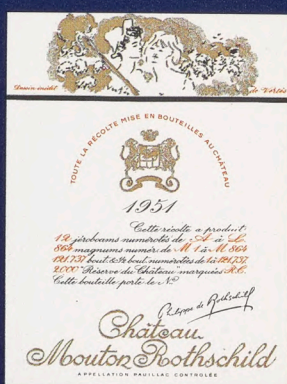 Dessin inédit de Vertès
TOUTE LA RÉCOLTE MISE EN BOUTEILLES AU CHÂTEAU
1951
Cette récolte a produit:
12 jéroboams numérotés de A à L
864 magnums numér. de M 1 à M 864
121.737 bout. & ½ bout. numérotées de 1 à 121.737
2000 "Réserve du Château" marquées R.C.
Cette bouteille porte le No
Philippe de Rothschild
Château
Mouton Rothschild
APPELLATION PAUILLAC CONTROLÉE